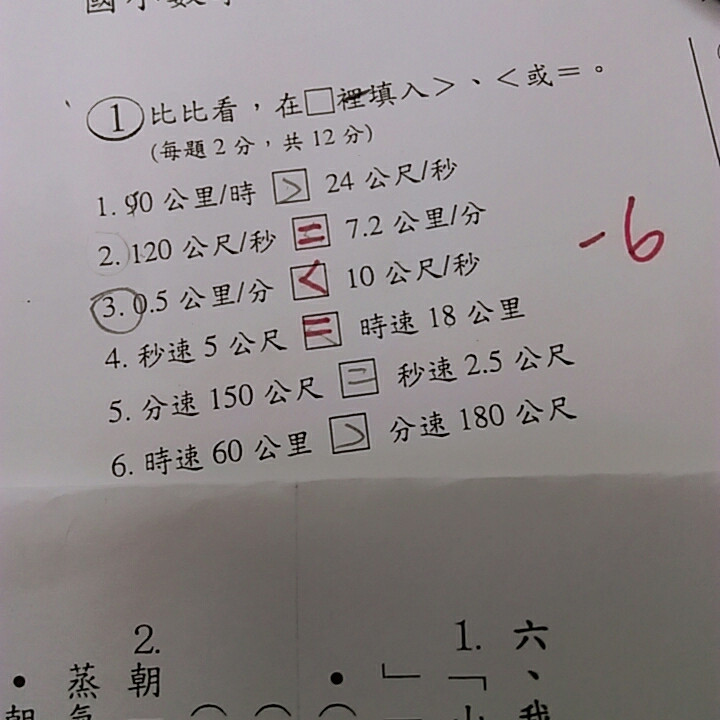 ① 比比看，在□裡填入＞、＜或＝。
(每題 2 分，共 12 分)
1. 90 公里/時 > 24 公尺/秒
2. 120 公尺/秒 = 7.2 公里/分
3. 0.5 公里/分 < 10 公尺/秒
4. 秒速 5 公尺 = 時速 18 公里
5. 分速 150 公尺 = 秒速 2.5 公尺
6. 時速 60 公里 > 分速 180 公尺
-6
六、我
1.
2.
朝
蒸